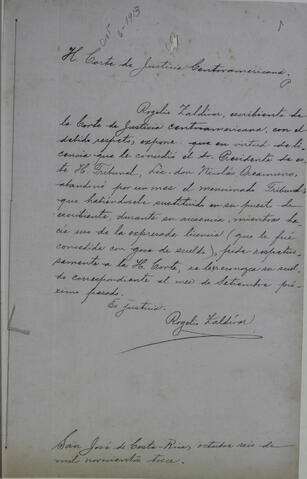 Oct 6-1913
1
H. Corte de Justicia Centroamericana.
Rogelio Zaldivar, escribiente de
la Corte de Justicia centroamericana, con el
debido respeto, expone: que en virtud de li-
cencia que le concedió el sr. Presidente de es-
te H. Tribunal, Lic. don Nicolás Oreamuno,
abandoné por un mes el mencionado Tribunal;
que habiéndosele sustituido en su puesto de
escribiente, durante su ausencia, mientras ha-
cía uso de la expresada licencia (que le fué
concedida con goce de sueldo), pide respetuo-
samente a la H. Corte, se le reconozca su suel-
do correspondiente al mes de Setiembre pró-
ximo pasado.
Es justicia.
Rogelio Zaldivar
San José de Costa-Rica, octubre seis de
mil novecientos trece.